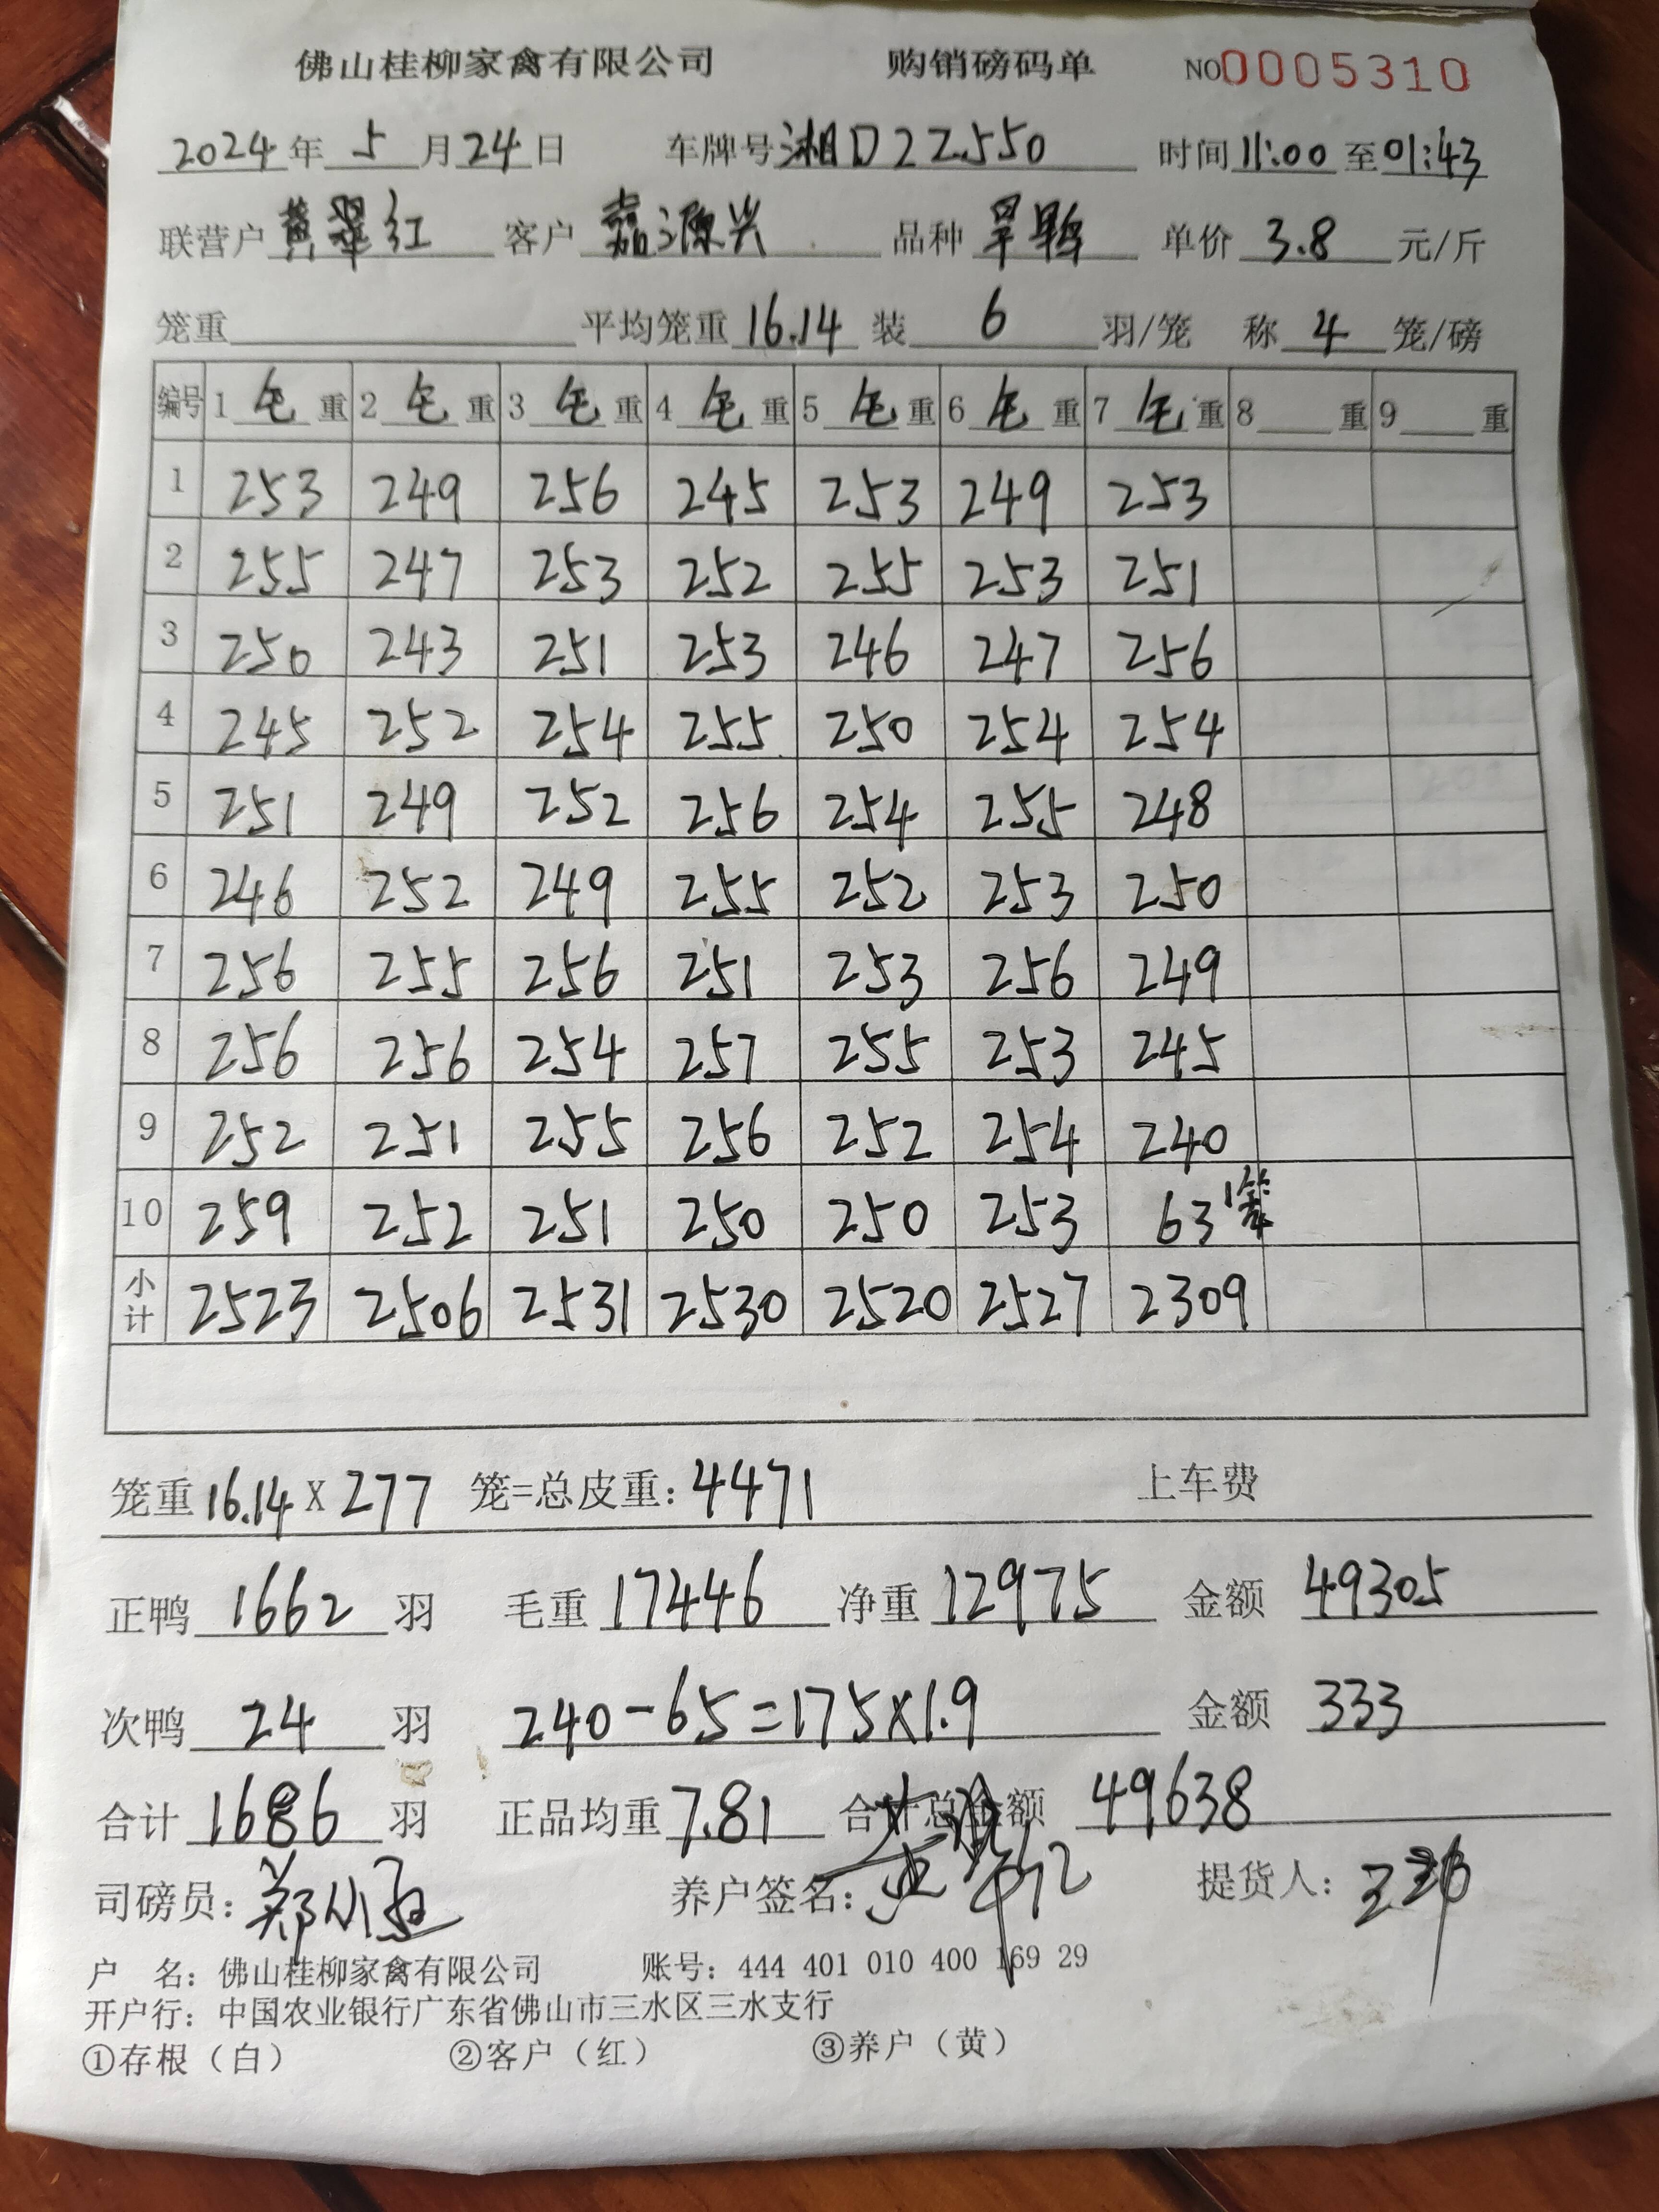 佛山桂柳家禽有限公司 购销磅码单 NO0005310
2024年5月24日 车牌号湘D2Z550 时间11:00至01:43
联营户黄翠红 客户嘉源兴 品种旱鸭 单价3.8元/斤
笼重 平均笼重16.14装6羽/笼 称4笼/磅
编号 1毛重 2毛重 3毛重 4毛重 5毛重 6毛重 7毛重 8重 9重
1 253 249 256 245 253 249 253
2 255 247 253 252 255 253 251
3 250 243 251 253 246 247 256
4 245 252 254 255 250 254 254
5 251 249 252 256 254 255 248
6 246 252 249 255 252 253 250
7 256 255 256 251 253 256 249
8 256 256 254 257 255 253 245
9 252 251 255 256 252 254 240
10 259 252 251 250 250 253 63 1笼
小计 2523 2506 2531 2530 2520 2527 2309
笼重16.14X277笼=总皮重:4471 上车费
正鸭1662羽 毛重17446净重12975 金额49305
次鸭24羽 240-65=175×1.9 金额333
合计1686羽 正品均重7.81 合计总金额49638
司磅员: 养户签名: 提货人:
户 名:佛山桂柳家禽有限公司 账号:444 401 010 400 169 29
开户行:中国农业银行广东省佛山市三水区三水支行
①存根(白) ②客户(红) ③养户(黄)